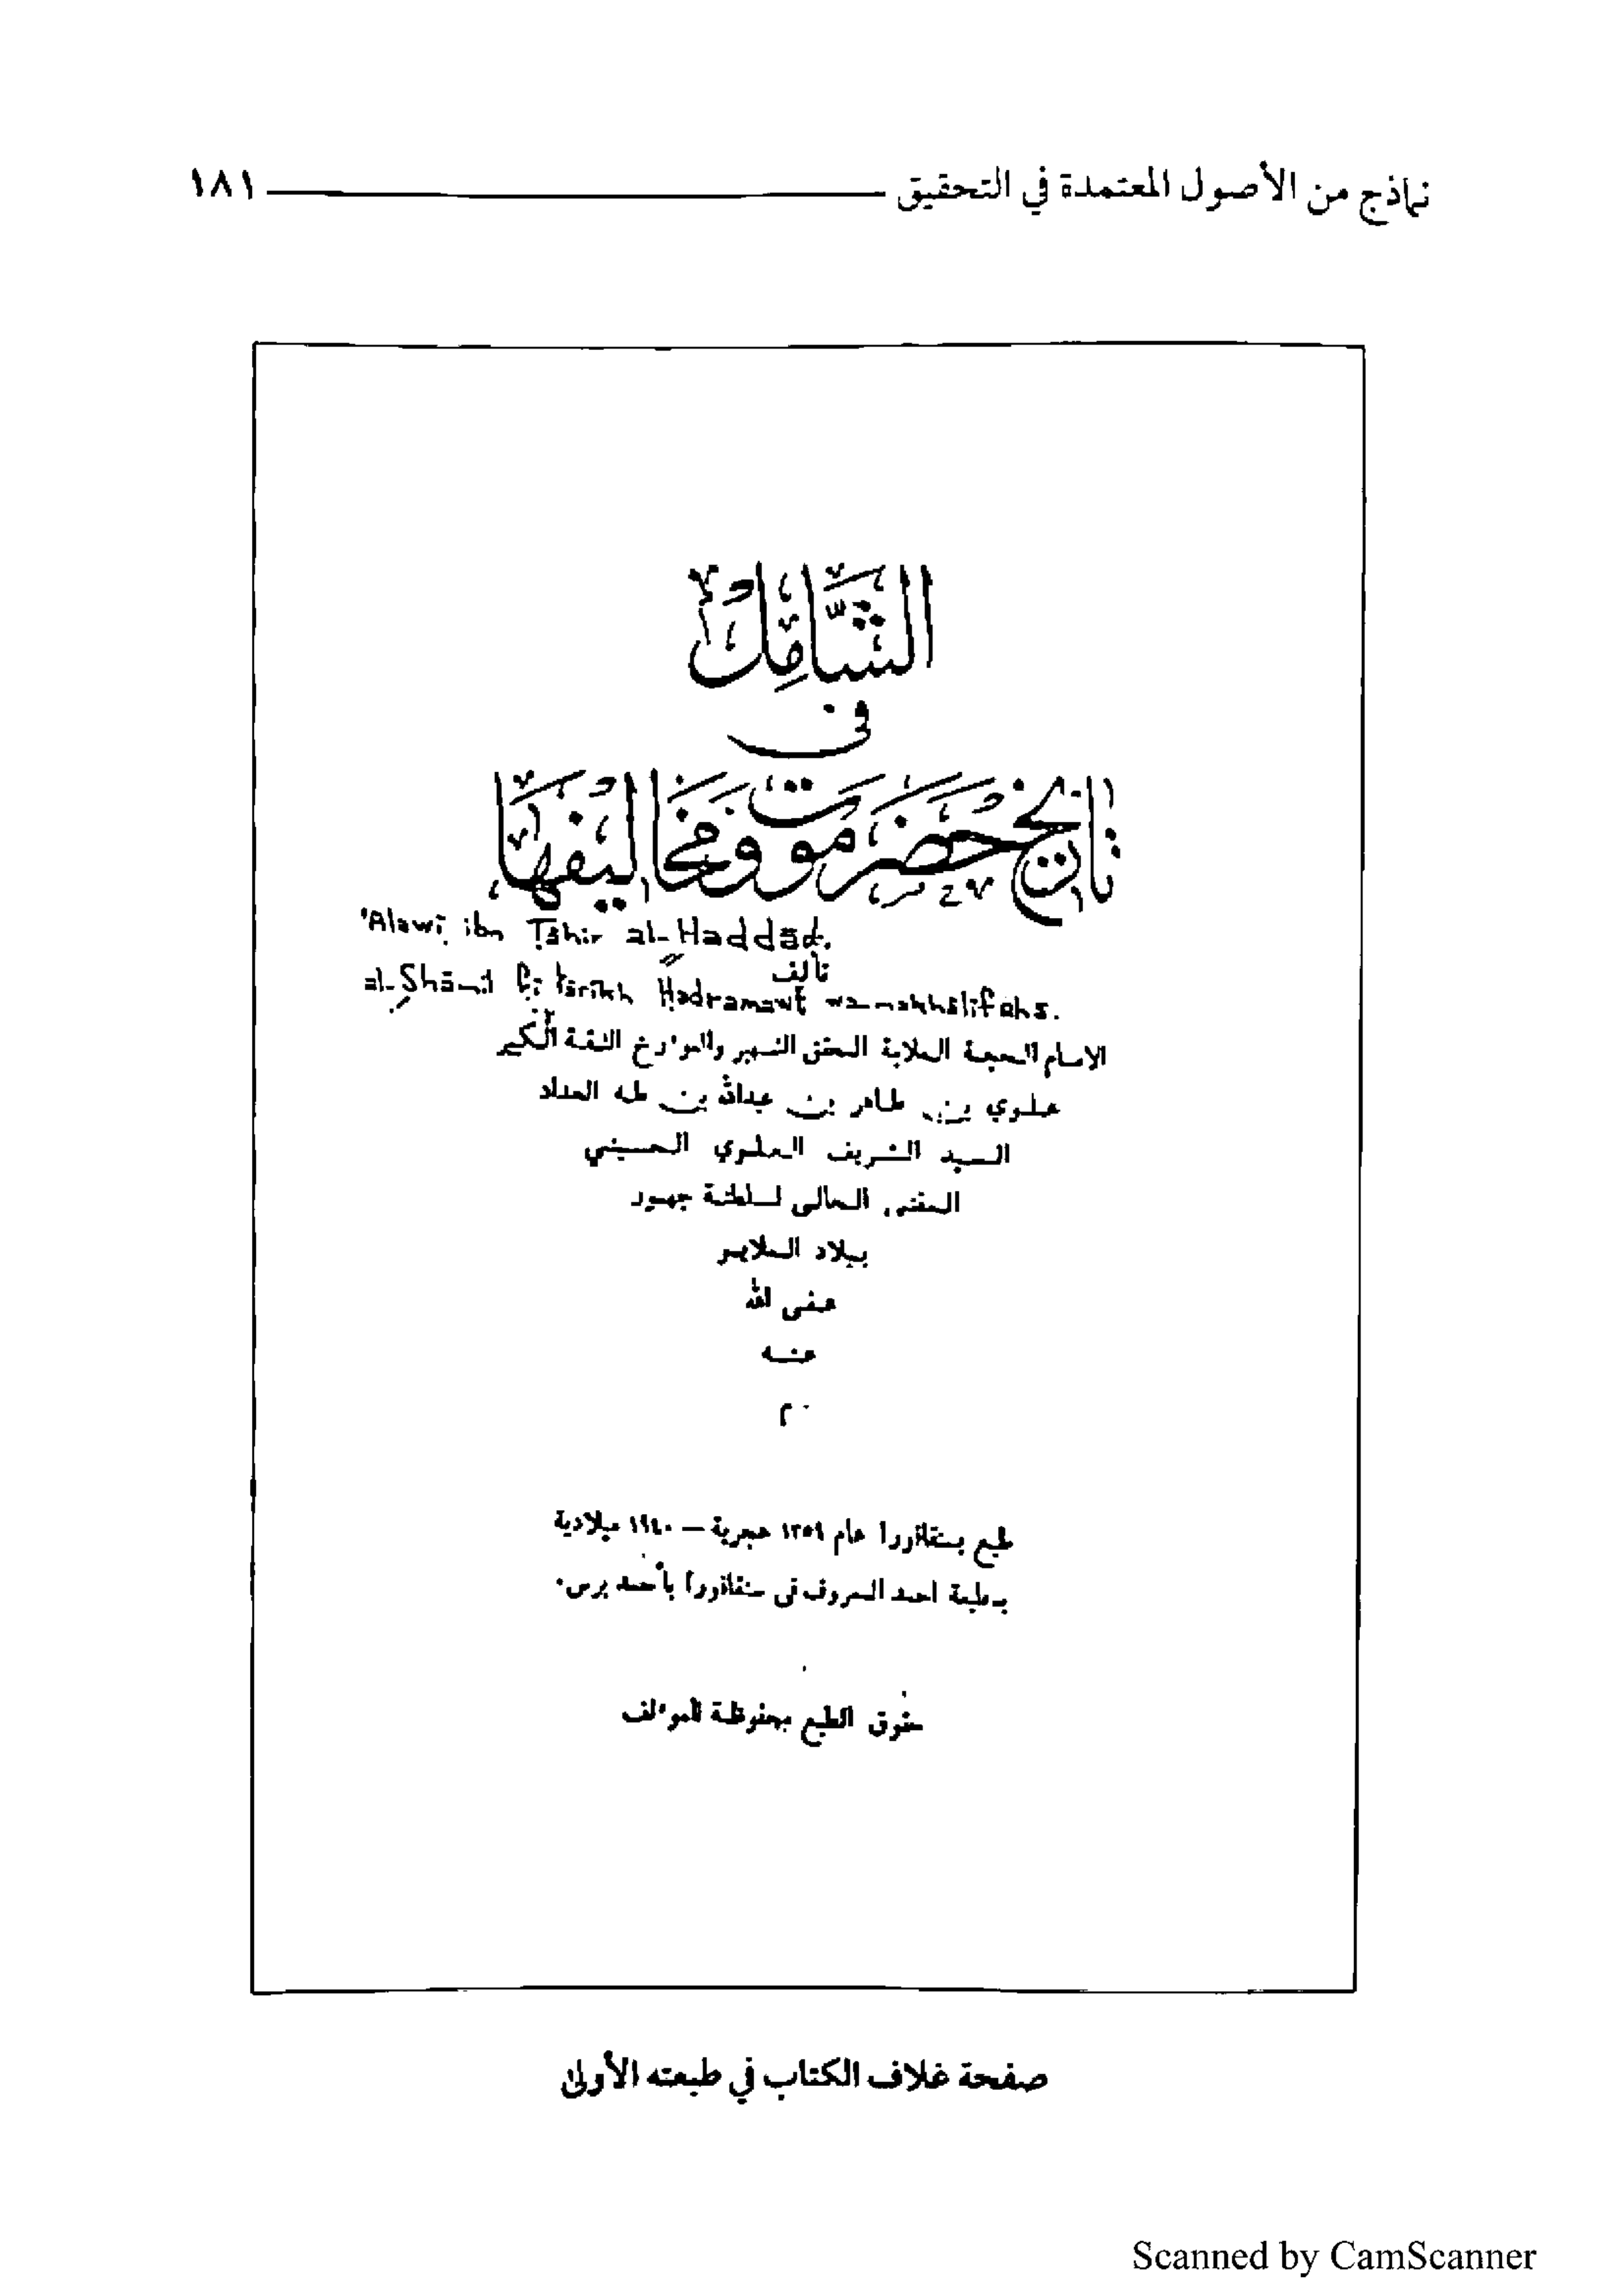 نماذج من الأصول المعتمدة في التحقيق ١٨١
الشَّامِلُ
في
تَارِيخِ حَضْرَمَوْتَ وَمَخَالِيفِهَا
'Alawī ibn Ṭāhir al-Ḥaddād.
تأليف
al-Shāmil fī tārīkh Ḥadramawt wa-makhālifahs.
الامام الحجة العلامة المحقق الشهير والمو'رخ الثقة الكبير
علوي بن طاهر بن عبدالله بن طه الحداد
السيد الشريف العلوي الحسيني
المفتى الحالى لسلطنة جهور
ببلاد الملايو
عفى الله
عنه
طبع بسنقافورا عام ١٣٥٩ هجرية — ١٩٤٠ ميلادية
بمطبعة احمد المعروف في سنقافورا بأحمد برس.
حقوق الطبع محفوظة للمو'لف
صفحة غلاف الكتاب في طبعته الأولىٰ
Scanned by CamScanner